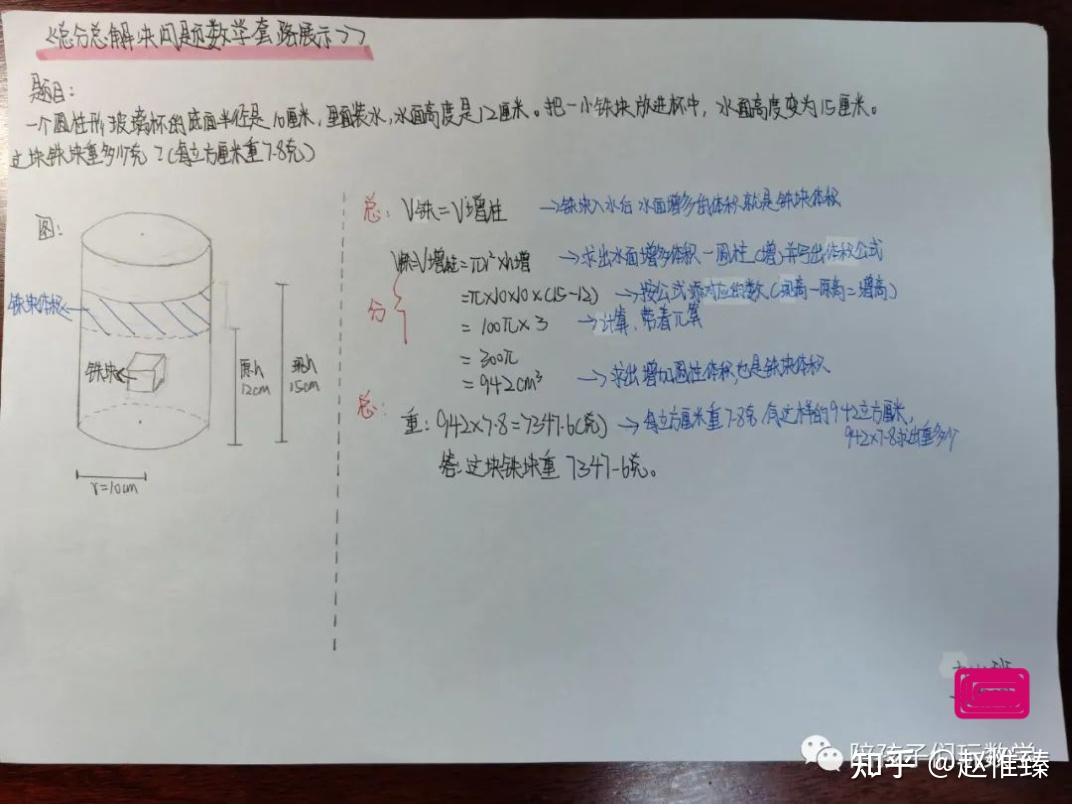 《总分总解决问题数学套路展示》
题目:
一个圆柱形玻璃杯的底面半径是10厘米,里面装水,水面高度是12厘米。把一小铁块放进杯中,水面高度变为15厘米。
这块铁块重多少克?(每立方厘米重7.8克)
图:
铁块体积
铁块
原h
12cm
现h
15cm
r=10cm
总: V铁=V增柱 →铁块入水后水面增多的体积就是铁块体积
分
V铁=V增柱=πr²×h增 →求出水面增多体积-圆柱(增)并写出体积公式
=π×10×10×(15-12) →按公式添对应的数(现高-原高=增高)
=100π×3 →计算,带着π算
=300π
=942cm³ →求出增加圆柱体积,也是铁块体积
总:
重:942×7.8=7347.6(克) →每立方厘米重7.8克,有这样的942立方厘米,
942×7.8求出重多少
答:这块铁块重7347.6克。
陪孩子们玩数学
知乎 @赵惟臻